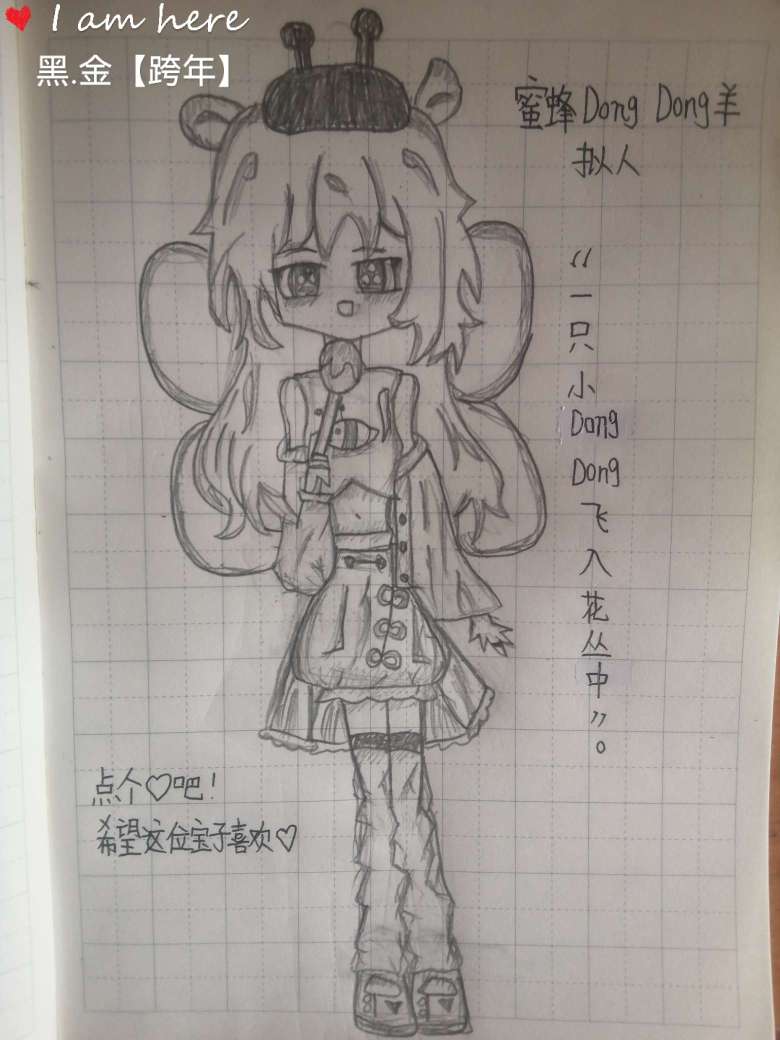 I am here
黑.金【跨年】
蜜蜂Dong Dong羊
拟人
“一只小Dong Dong飞入花丛中”。
点个♡吧！
希望这位宝子喜欢♡